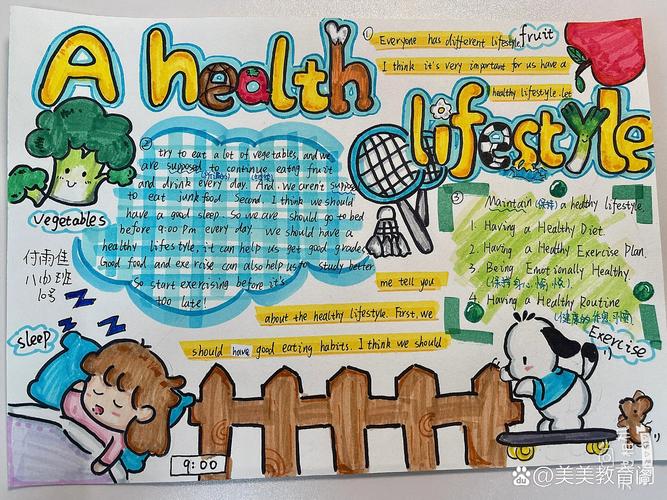 A health
lifestyle
fruit
① Everyone has different lifestyle.
I think it's very important for us have a
healthy lifestyle. Let
me tell you
about the healthy lifestyle. First, we
should have good eating habits. I think we should
② try to eat a lot of vegetables, and we
are supposed to continue eating fruit
and drink every day. And we aren't suppose
to eat junk food. Second, I think we should
have a good sleep. So we are should go to bed
before 9:00 pm every day. we should have a
healthy lifestyle. it can help us get good grades.
Good food and exercise can also help us to study better.
So start exercising before it's
too late!
③ Maintain (保持) a healthy lifestyle
1. Having a Healthy Diet.
2. Having a Healthy Exercise Plan.
3. Being Emotionally Healthy
(保持身心愉悦)
4. Having a Healthy Routine
(健康的作息习惯)
vegetables
付雨佳
八(4)班
10号
sleep
Z Z Z
Exercise
9:00
百家号@美美教育阁